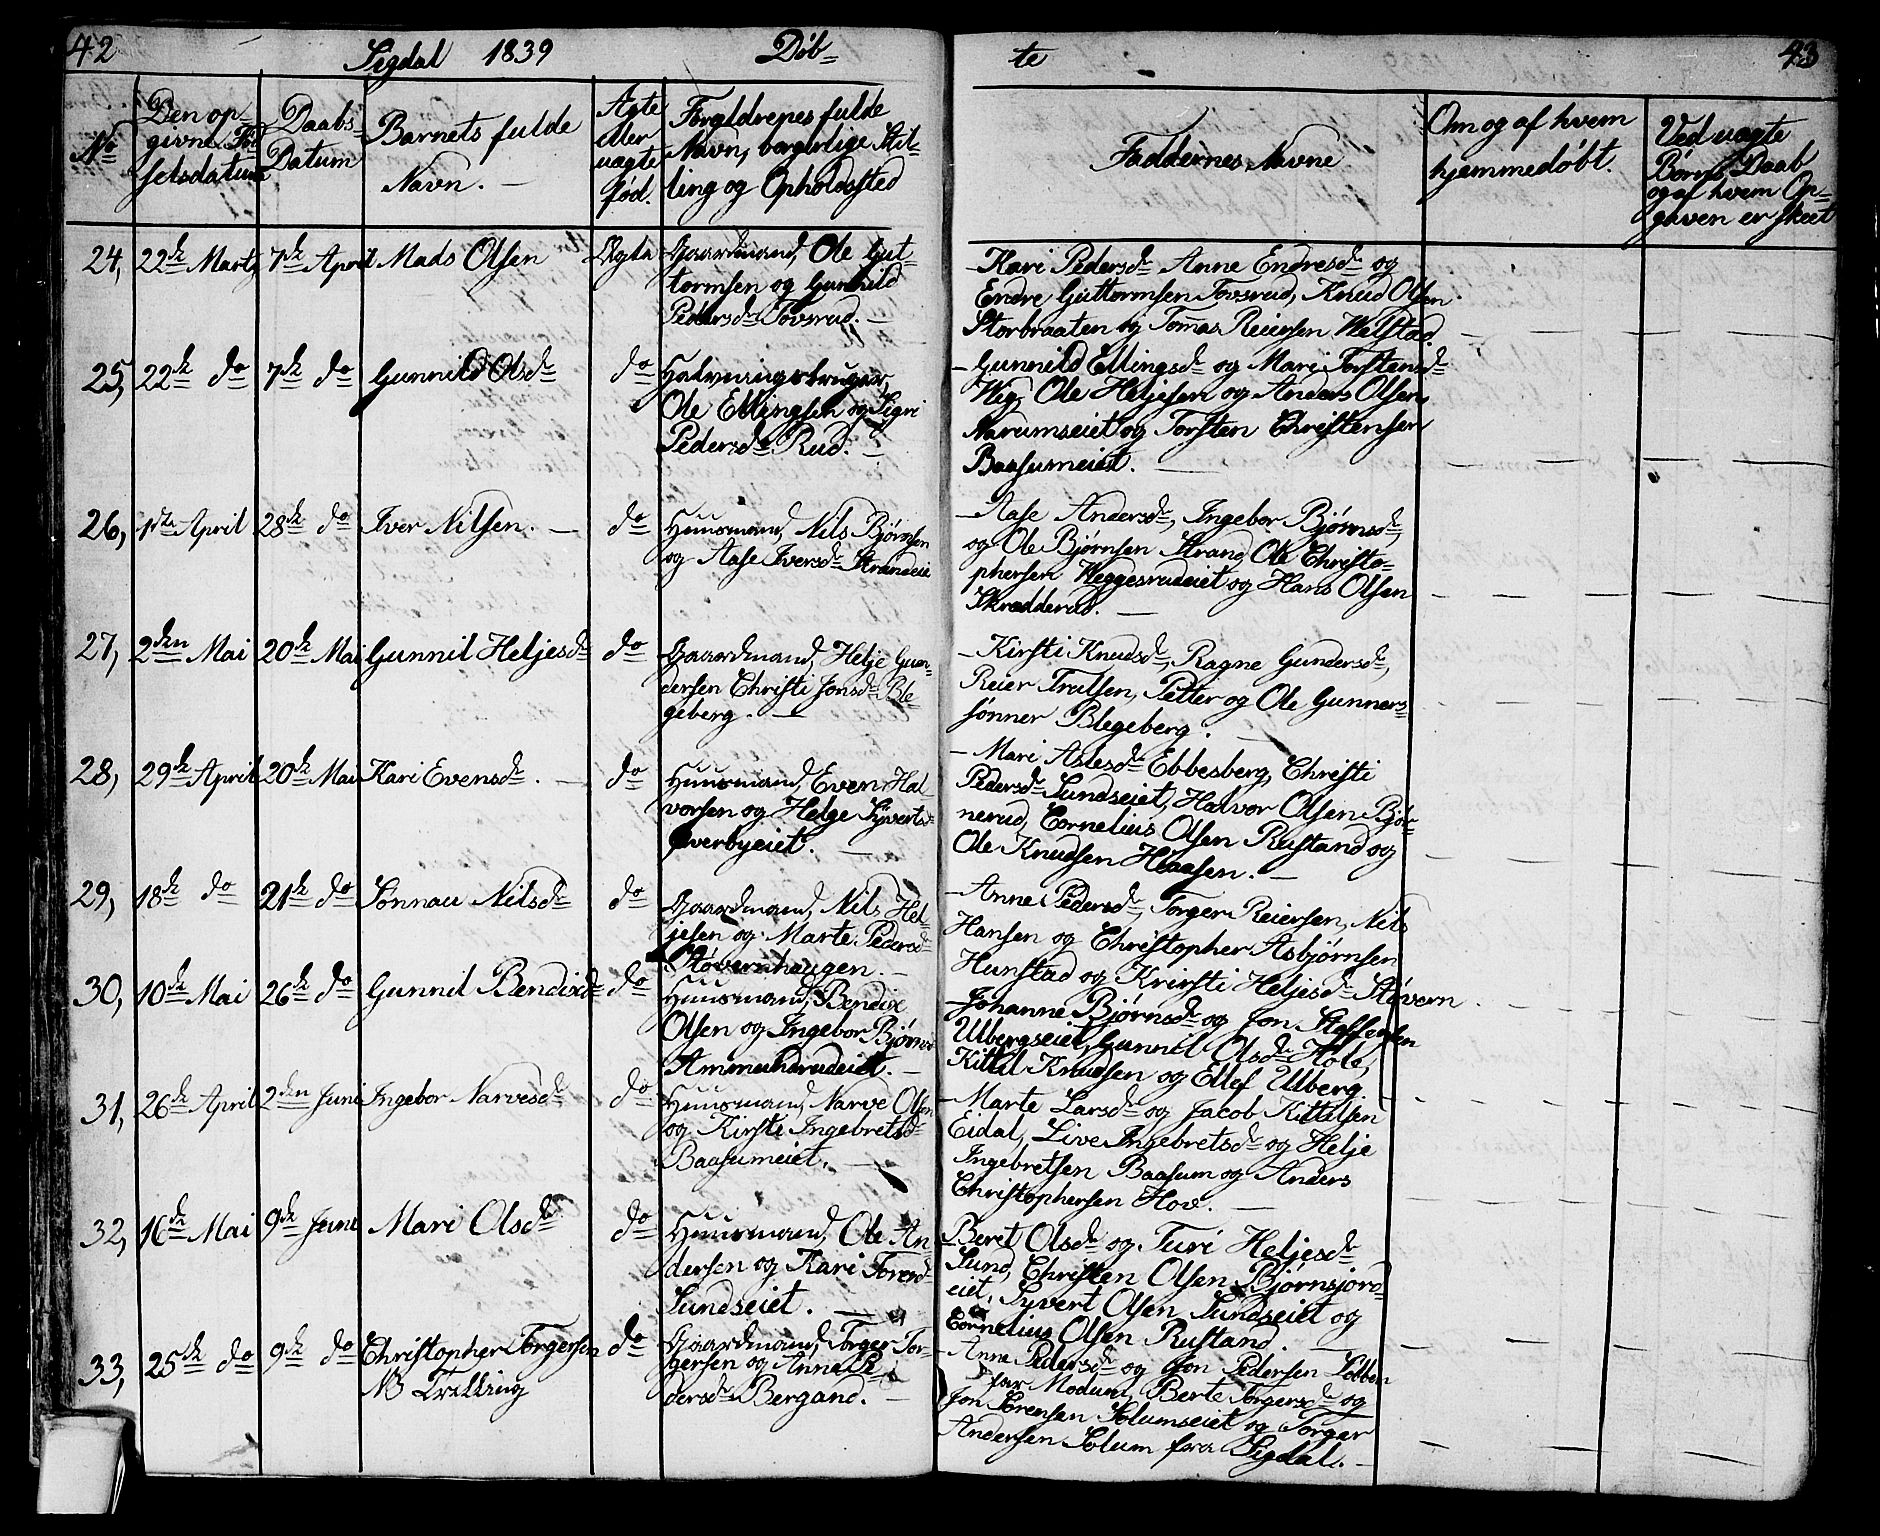 42 Sigdal 1839 Döb-
te 43
No
Den op-
givne Föd
selsdatum
Daabs-
Datum
Barnets fulde
Navn. —
Ægte
eller
uægte
fød.
Forældrenes fulde
Navn, borgerlige Stil-
ling og Opholdssted
Faddernes Navne
Om og af hvem
hjemmedøbt.
Ved uægte
Børns Daab
og af hvem Op-
gaven er skeet
24, 22de Marts 7de April Mads Olsen Ægte
Gaardmand, Ole Gut-
tormsen og Gunnild
Pedersdr Tovsrud. —
— Kari Pedersdr Anne Endresdr og
Endre Guttormsen Tovsrud, Knud Olsen
Storbraaten og Tomas Reiersen Welstad.
25, 22de do 7de do Gunnild Olsdr do
Halvningsbruger,
Ole Ellingsen og Sigri
Pedersdr Rud. —
— Gunnild Ellingsdr og Mari Torstensdr
Weg, Ole Heljesen og Anders Olsen,
Narumseiet og Torsten Christensen
Baasumeiet. —
26, 1ste April 28de do Iver Nilsen. — do
Huusmand, Nils Bjørnsen
og Aase Iversdr Strandeie
— Aase Andersdr, Ingebor Bjørnsdr,
og Ole Bjørnsen Strand, Ole Christo-
phersen Weggesrudeiet og Hans Olsen
Skrædderud. —
27, 2den Mai 20de Mai Gunnil Heljesdr do
Gaardmand, Helje Gun-
dersen Christi Jonsdr Ble-
geberg. —
— Kirsti Knudsdr, Ragne Gundersdr,
Reier Trulsen, Petter og Ole Gunners-
sønner Blegeberg. —
28, 29de April 20de Mai Kari Evensdr. — do
Huusmand, Even Hal-
vorsen og Helge Syvertsdr
Øverbyeiet. —
— Mari Aslesdr Ebbesberg, Christi
Pedersdr Sundseiet, Halvor Olsen Bjør-
nerud, Cornelius Olsen Rustand og
Ole Knudsen Haasen. —
29, 18de do 21de do Sønnau Nilsdr do
Gaardmand, Nils Hel-
jesen og Marte Pedersdr
Støvernhaugen. —
— Anne Pedersdr, Torger Reiersen, Nils
Hansen og Christopher Asbjørnsen
Hunstad og Krirsti Heljesdr Støvern
30, 10de Mai 26de do Gunnil Bendixdr do
Huusmand, Bendix
Olsen og Ingebor Bjørnsdr
Ammundrudeiet. —
— Johanne Bjørnsdr og Jon Steffensen
Ulbergseiet, Gunnil Olsdr Hole,
Kittil Knudsen og Ellef Ulberg
31, 26de April 2den Juni Ingebor Narvesdr do
Huusmand, Narve Olsen
og Kirsti Ingebretsdr
Baasumeiet. —
— Marte Larsdr og Jacob Kittilsen
Eidal, Live Ingebretsdr og Helje
Ingebretsen Baasum og Anders
Christophersen Hov. —
32, 16de Mai 9de Juni Mari Olsdr do
Huusmand, Ole An-
dersen og Kari Toresdr
Sundseiet. —
— Beret Olsdr og Turi Heljesdr
Sund, Christen Olsen Bjørnsjord-
eiet, Syvert Olsen Sundseiet og
Cornelius Olsen Rustand. —
33, 25de do 9de do Christopher Torgersen do
NB Trilling
Gaardmand, Torger Tor-
gersen og Anne Pe-
dersdr Bergand. —
— Anne Pedersdr og Jon Pedersen Lobben
fra Modum, Berte Torgersdr og
Jon Sørensen Solumseiet og Torger
Andersen Solum fra Sigdal. —